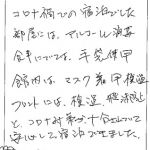 コロナ禍での宿泊でした
部屋には、アルコール消毒
食事については、手袋使用
館内は、マスク着用検温
フロントには、検温、
と、コロナ対策が十分
安心して宿泊できました。